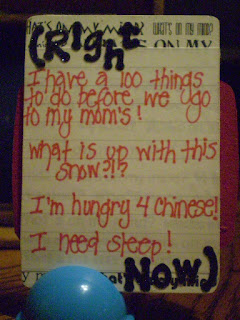 WHAT'S ON MY MIND? WHAT'S ON MY MIND?
ON MY
(Right
I have a 100 things
to do before we go
to my mom's!
what is up with this
snow?!?
I'm hungry 4 Chinese!
I need sleep!
Now)